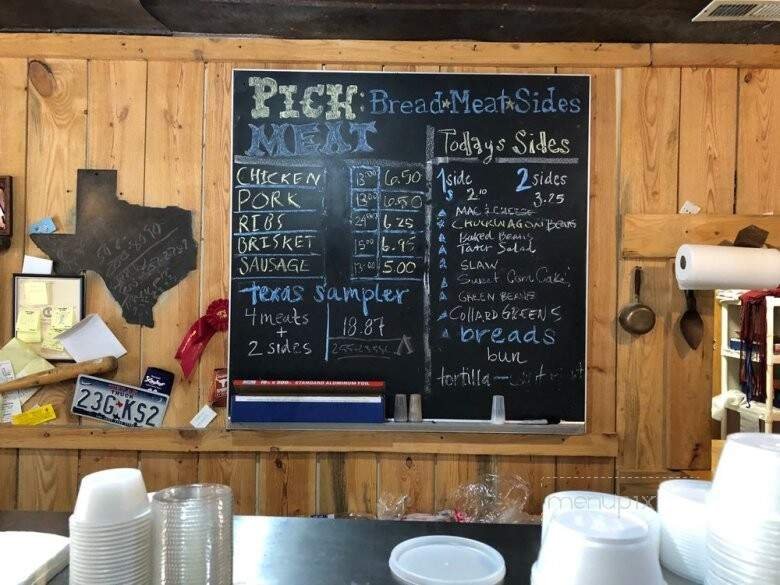 PICH: Bread★Meat★Sides
MEAT
CHICKEN 13.00 6.50
PORK 13.00 6.50
RIBS 6.25
BRISKET 15.00 6.95
SAUSAGE 5.00
Texas Sampler
4 meats
+
2 sides
18.87
Todays Sides
1 side 2 sides
3.75
MAC & CHEESE
CHUCKWAGON Beans
Baked Beans
Tater Salad
SLAW
Sweet Corn Cake
GREEN BEANS
COLLARD GREENS
breads
bun
tortilla
STANDARD ALUMINUM FOIL
23G KS2
menupix